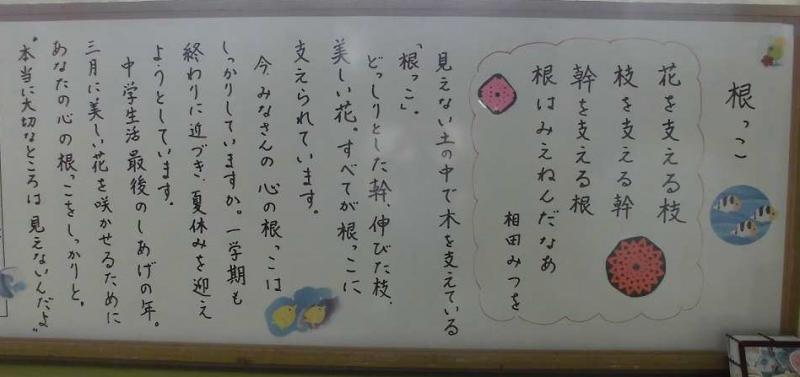 根っこ
花を支える枝
枝を支える幹
幹を支える根
根はみえねんだなあ
相田みつを
見えない土の中で木を支えている
「根っこ」。
どっしりとした幹、伸びた枝、
美しい花。すべてが根っこに
支えられています。
今、みなさんの心の根っこは
しっかりしていますか。一学期も
終わりに近づき、夏休みを迎え
ようとしています。
中学生活最後のしあげの年。
三月に美しい花を咲かせるために
あなたの心の根っこをしっかりと。
"本当に大切なところは見えないんだよ"